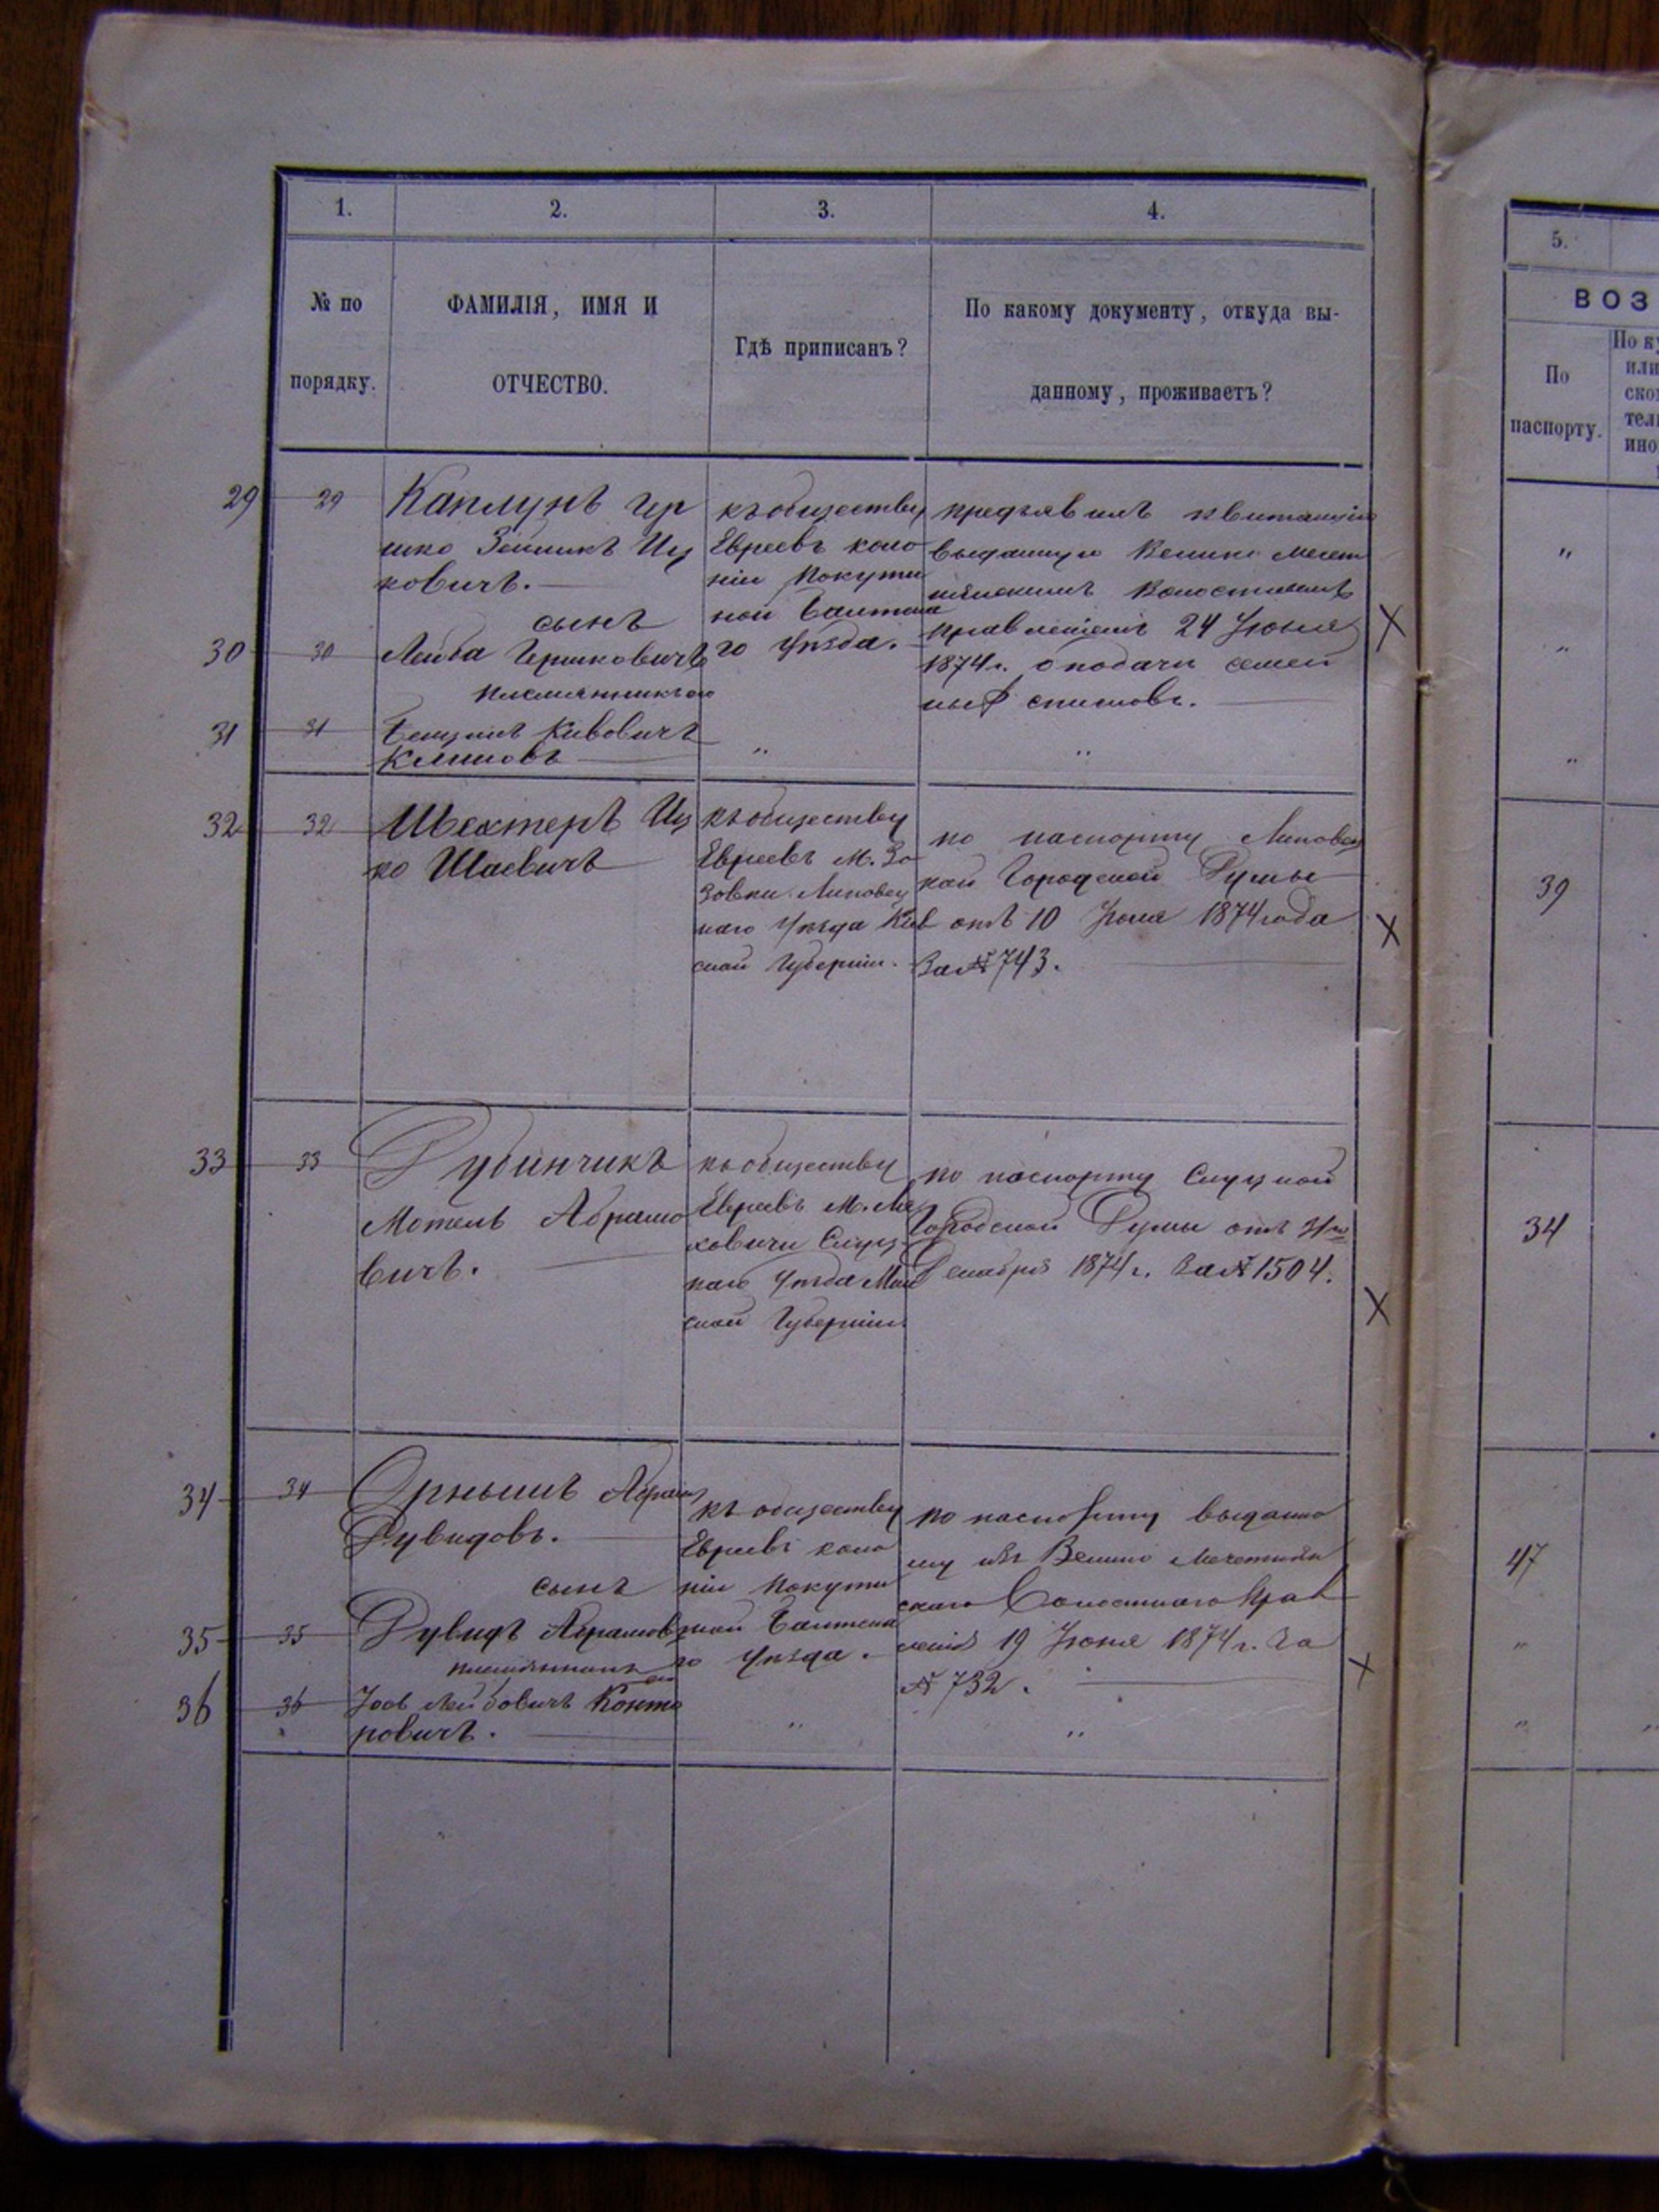 1. 2. 3. 4.
№ по
порядку.
ФАМИЛІЯ, ИМЯ И
ОТЧЕСТВО.
Гдѣ приписанъ?
По какому документу, откуда вы-
данному, проживаетъ?
29 29 Каплунъ Гер
шко Зейликъ Иц
ковичъ.
къ обществу
Евреевъ коло
ніи Покути
ной Балтска
го Уѣзда.
предъявилъ квитанцію
выданную Велико Мечет
Волостнымъ
правленіемъ 24 Іюня
1874 г. о подачи семей
ныхъ списковъ.
X
сынъ
30 30 Лейба Гершковичъ
племянникъ его
31 31 Бенціонъ Кивовичъ
Климовъ " "
32 32 Шехтеръ Иц
ко Шаевичъ
къ обществу
Евреевъ М. Зо
зовки Липовец
каго Уѣзда Кіев
ской Губерніи.
по паспорту Липовец
кой Городской Думы
отъ 10 Іюля 1874 года
За № 743.
X
33 33 Рубинчикъ
Мотель Абрамо
вичъ.
къ обществу
Евреевъ М. Ля
ховичи Слуц
каго Уѣзда Мин
ской Губерніи
по паспорту Слуцкой
Городской Думы отъ 4го
Декабря 1874 г. За № 1504.
X
34 34 Орнышъ Абрамъ
Рувидовъ.
къ обществу
Евреевъ коло
ніи Покути
ной Балтска
го Уѣзда.
по паспорту выданно
му изъ Велико Мечетнян
скаго Волостнаго Прав
ленія 19 Іюня 1874 г. За
№ 732.
X
сынъ
35 35 Рувидъ Абрамов
племянникъ его
36 36 Іось Лейбовичъ Конто
ровичъ. " "
5.
ВОЗ
По
паспорту.
По ку
или
ско
тел
ино
"
"
"
39
34
47
"
" "